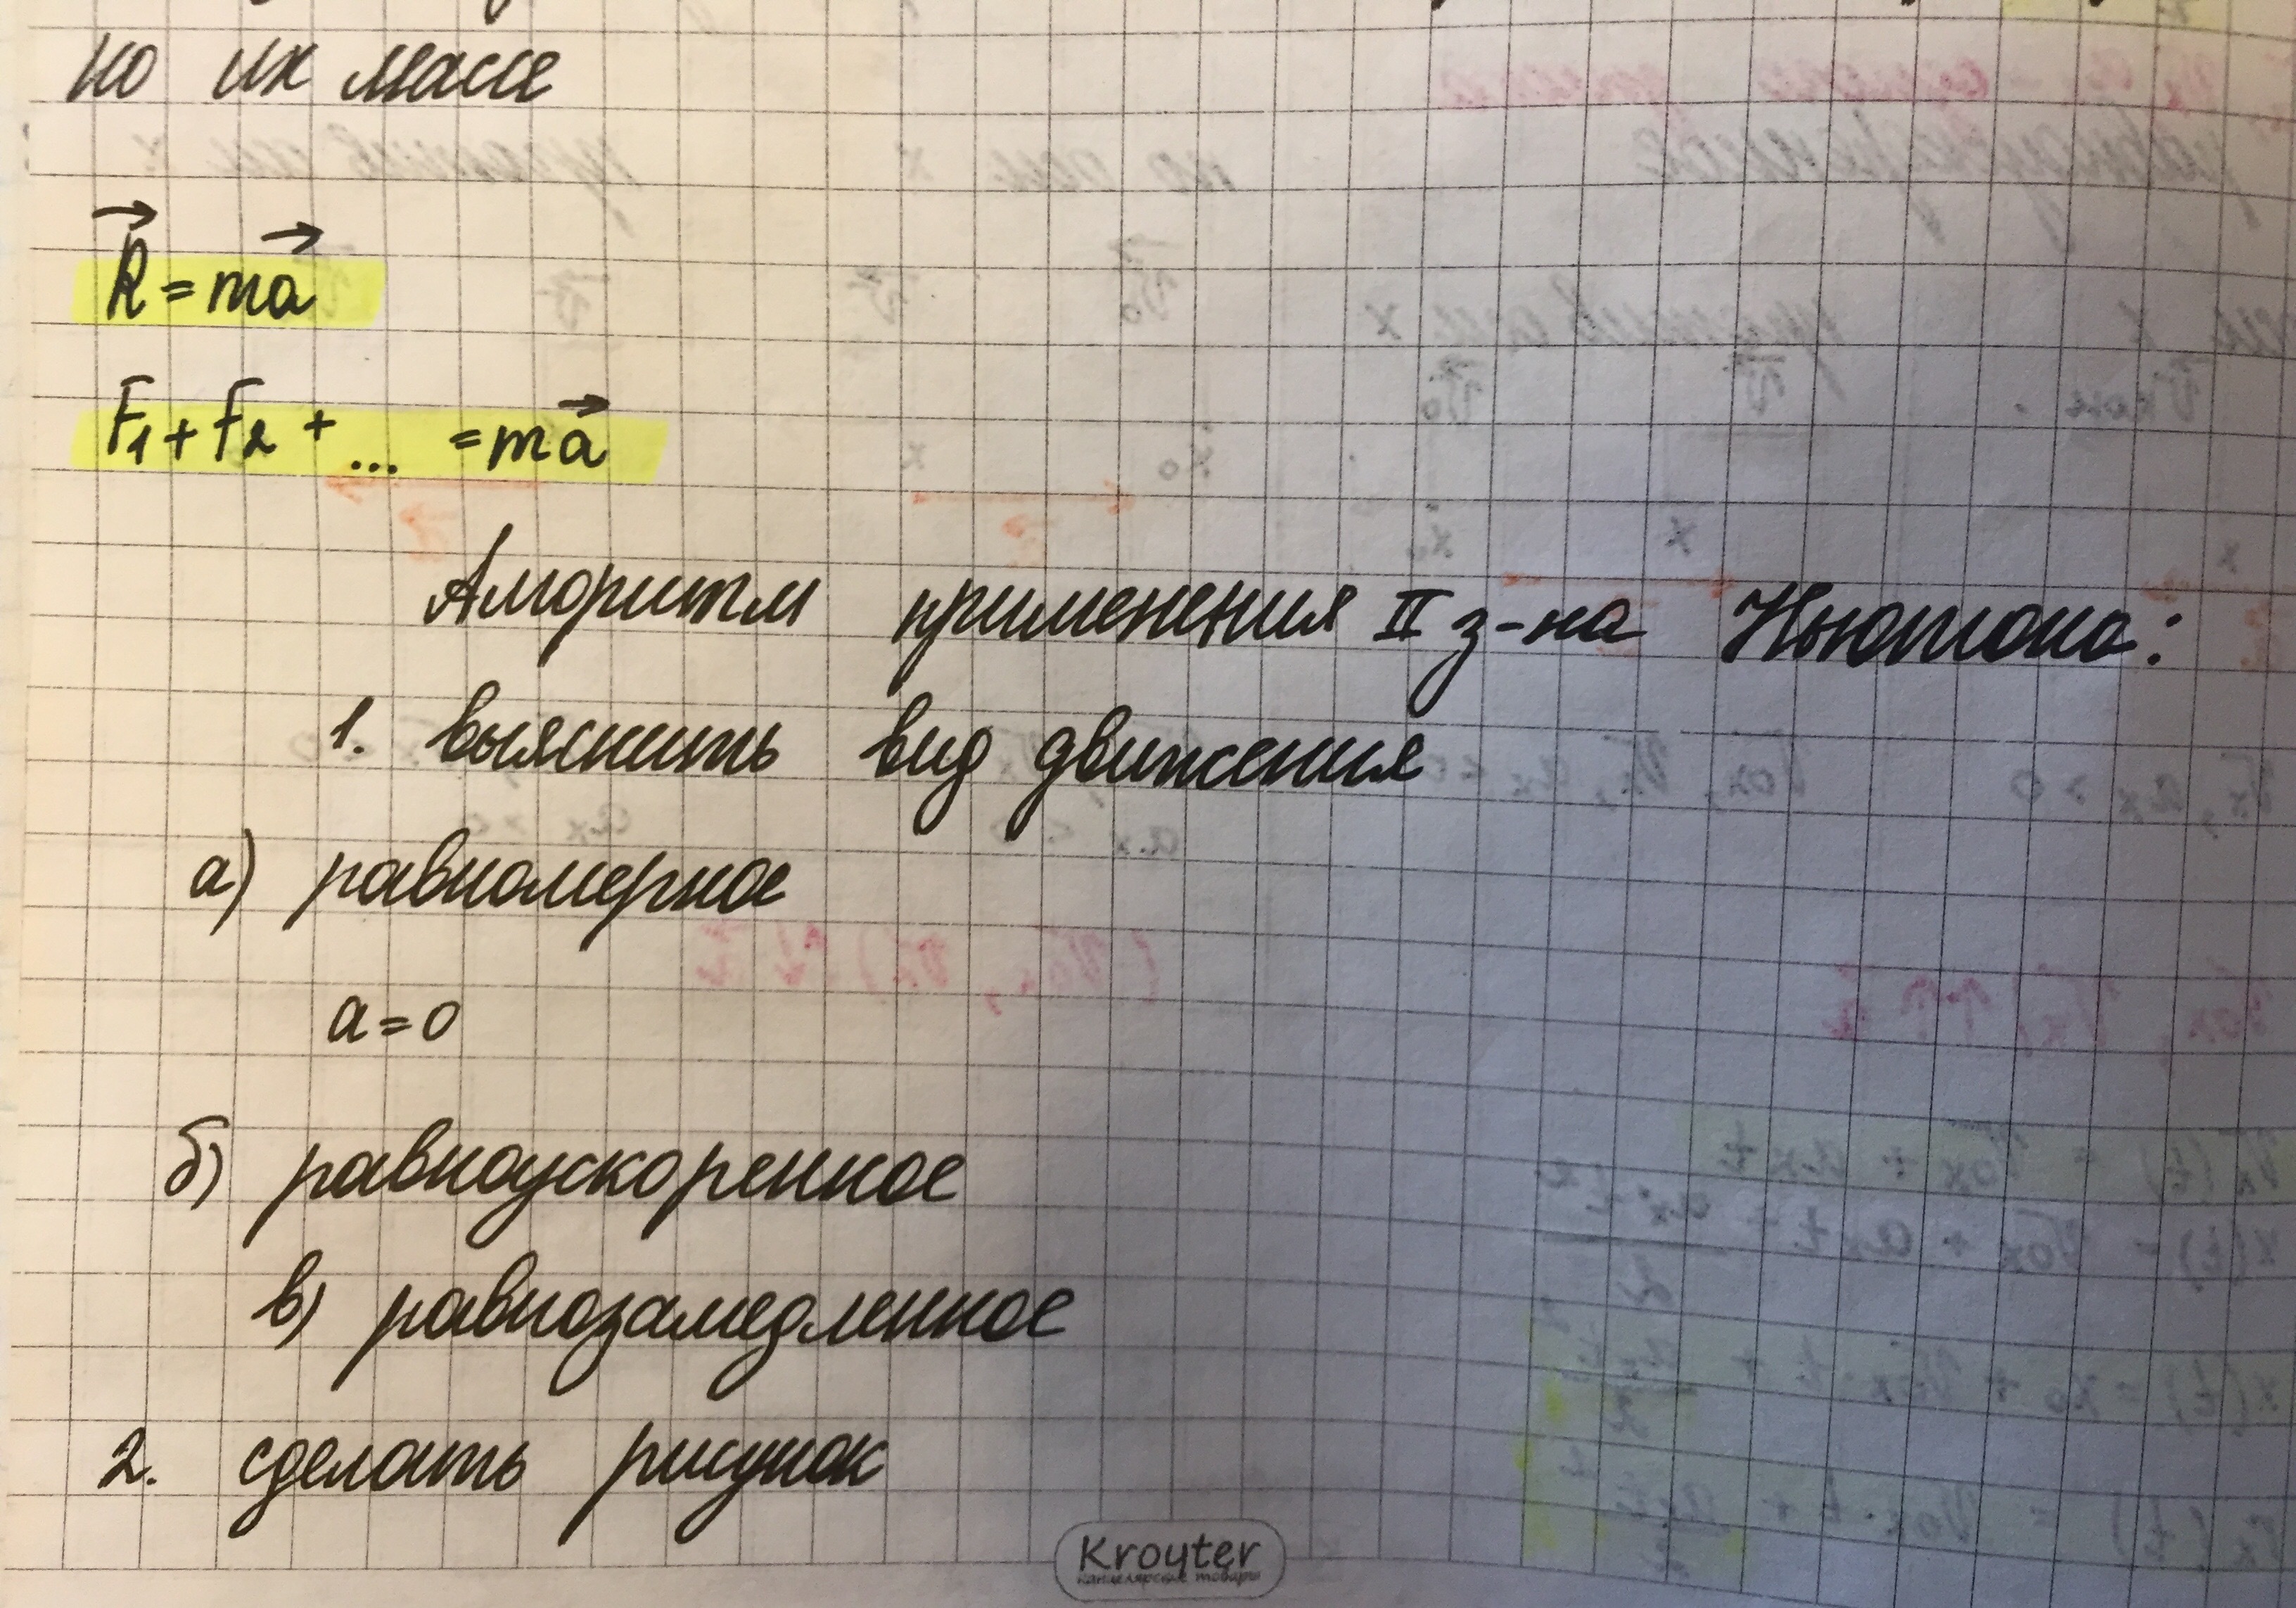 но их массе
R⃗ = ma⃗
F₁ + F₂ + ... = ma⃗
Алгоритм применения II з-на Ньютона:
1. выяснить вид движения
а) равномерное
a = 0
б) равноускоренное
в) равнозамедленное
2. сделать рисунок
Kroyter
канцелярские товары